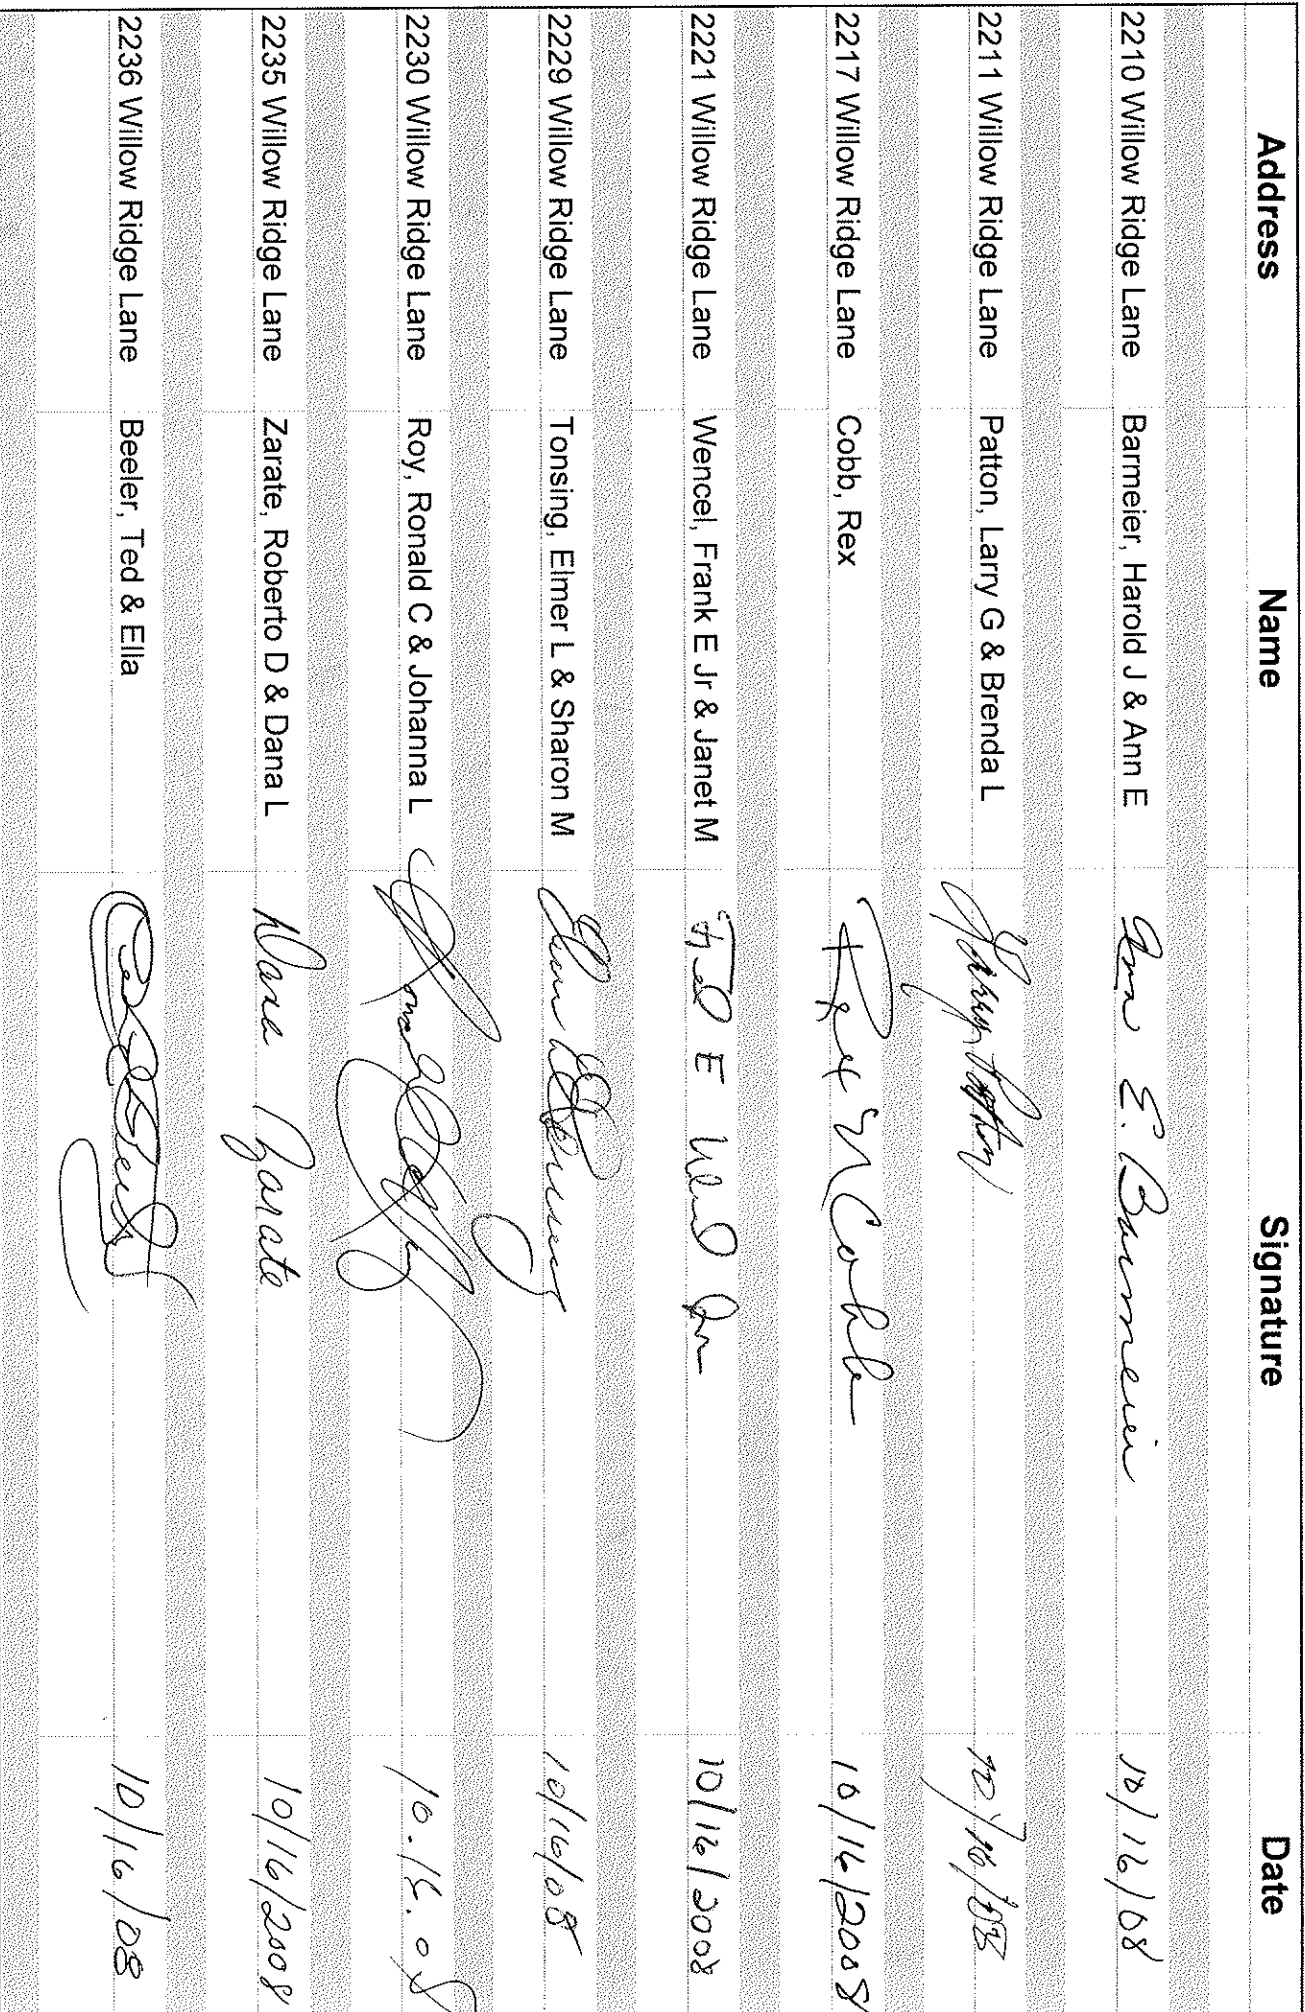 Address Name Signature Date
2210 Willow Ridge Lane Barmeier, Harold J & Ann E Ann E. Barmeier 10/16/08
2211 Willow Ridge Lane Patton, Larry G & Brenda L Larry Patton 10/16/08
2217 Willow Ridge Lane Cobb, Rex Rex N Cobb 10/16/2008
2221 Willow Ridge Lane Wencel, Frank E Jr & Janet M E Jr 10/16/2008
2229 Willow Ridge Lane Tonsing, Elmer L & Sharon M 10/16/08
2230 Willow Ridge Lane Roy, Ronald C & Johanna L 10.16.08
2235 Willow Ridge Lane Zarate, Roberto D & Dana L Dana Zarate 10/16/2008
2236 Willow Ridge Lane Beeler, Ted & Ella 10/16/08